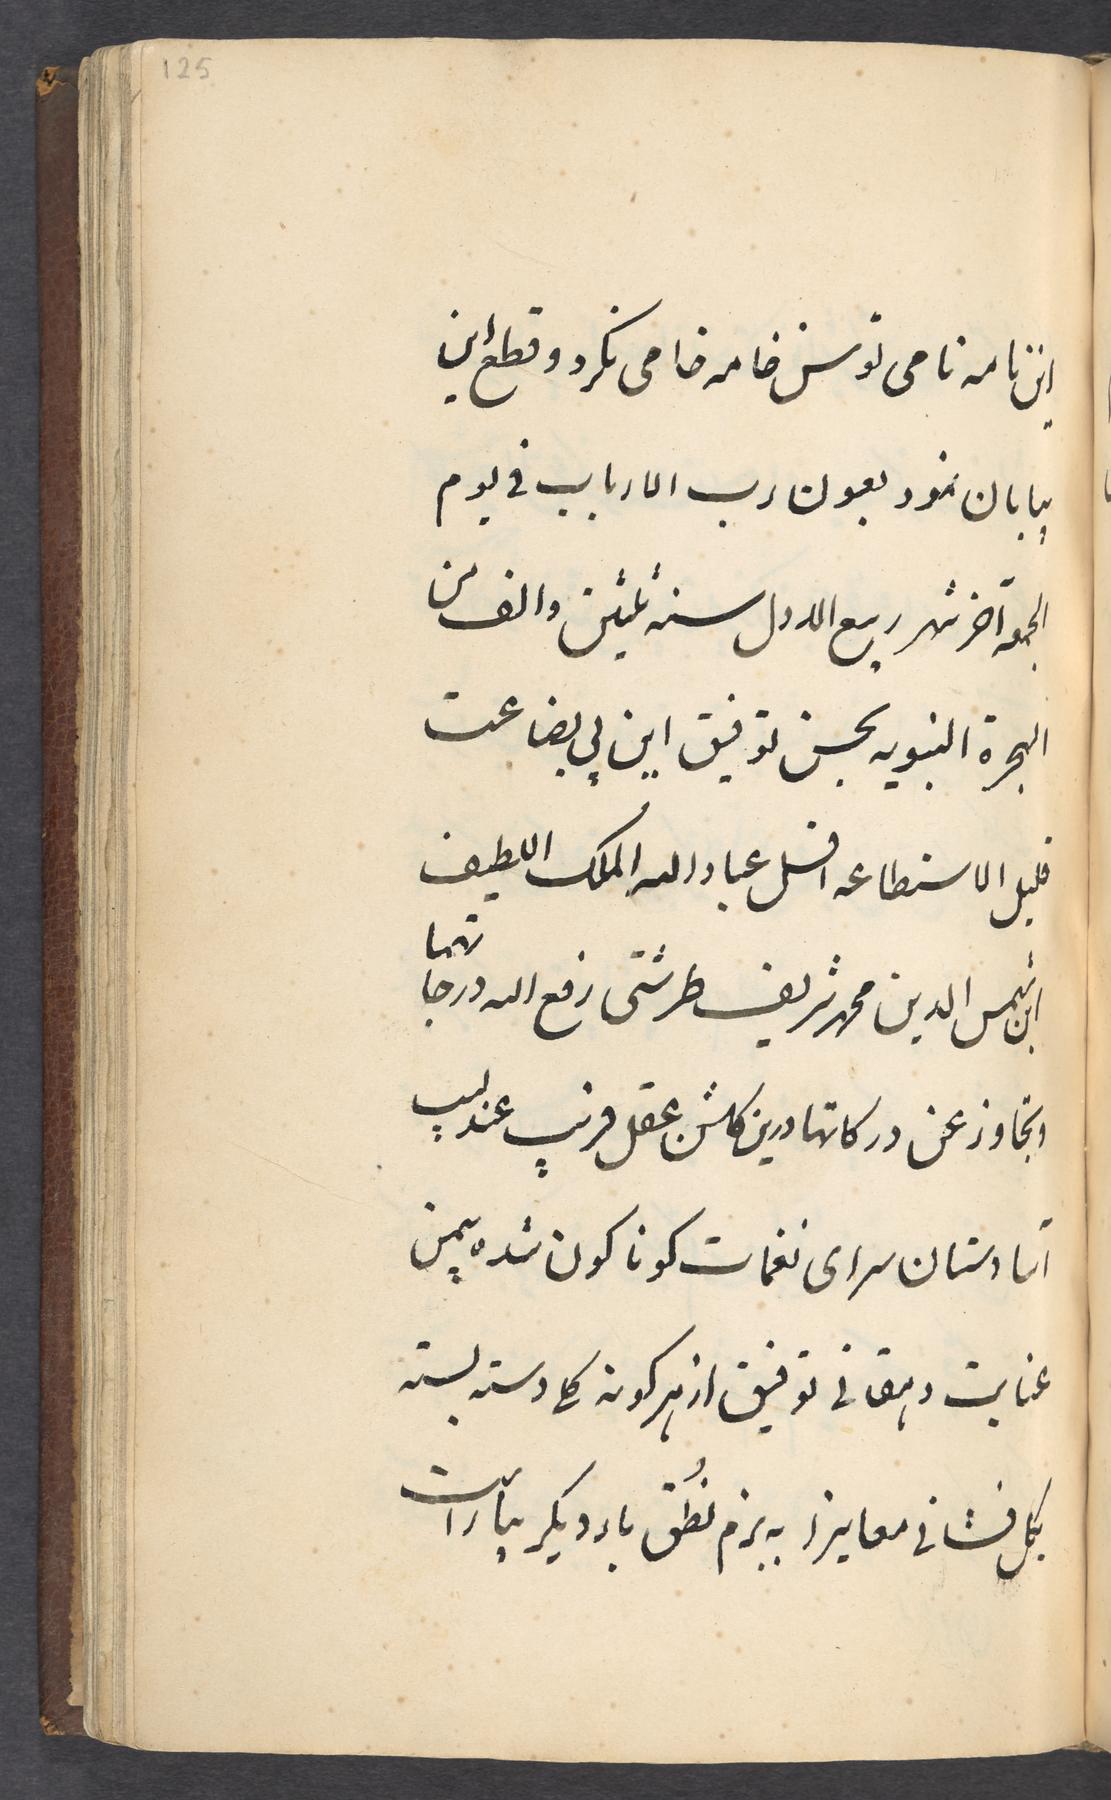 125
این نامه نامی توسن خامه خامی نکرد و قطع این
بیابان نمود بعون رب الارباب فی یوم
الجمعه آخر شهر ربیع الاول سنه ثلثین والف من
الهجرة النبویه بحسن توفیق این بی بضاعت
قلیل الاستطاعه اقل عباد الله الملک اللطیف
ابن شمس الدین محمد شریف طرشتی رفع الله درجاتهما
وتجاوز عن درکاتهما درین گلشن عقل فریب عندلیب
آسا دستان سرای نغمات کوناکون شده بیمن
عنایت دهقانی توفیق از هر کونه کل دسته بسته
بکل فشانی معانیرا به بزم نطُق بار دیکر بیاراست